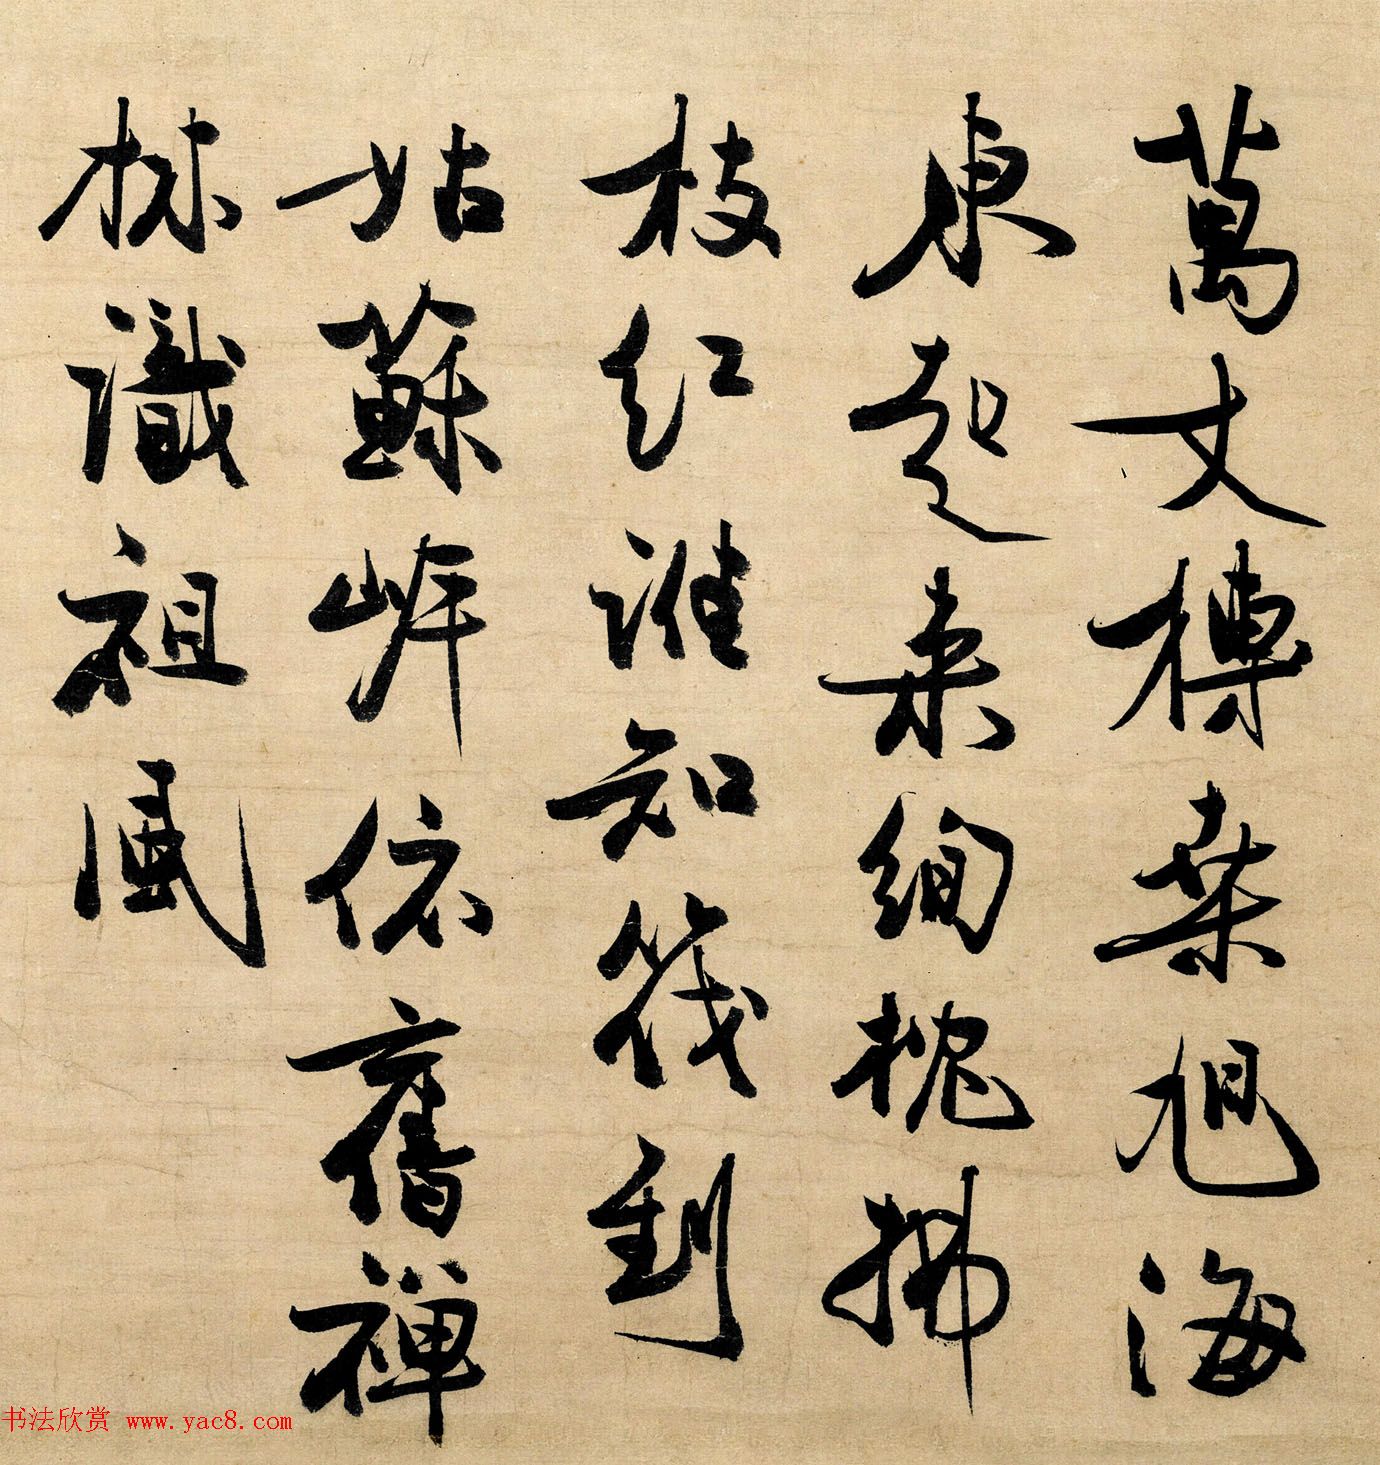 萬丈榑桒旭海
東起来絢拂
枝紅誰知筏到
姑蘇岸依舊禪
林識祖風
书法欣赏 www.yac8.com